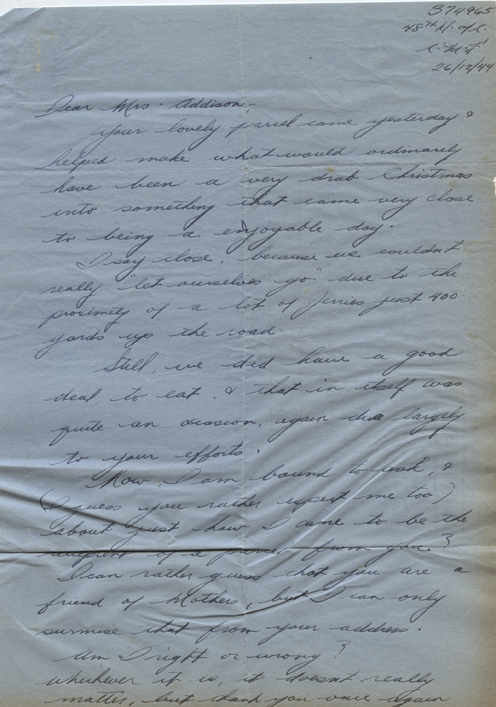 374965
48th H. of C.
C.M.F.
26/12/44
Dear Mrs. Addison,-
Your lovely parcel came yesterday &
helped make what would ordinarily
have been a very drab Christmas
into something that came very close
to being a enjoyable day.
I say close, because we couldn't
really "let ourselves go" due to the
proximity of a lot of Jerries just 400
yards up the road.
Still, we did have a good
deal to eat, & that in itself was
quite an occasion, again due largely
to your efforts.
Now, I am bound to ask, &
(I guess you rather expect me too)
about just how I came to be the
recipient of a parcel from you?
I can rather guess that you are a
friend of Mothers, but I can only
surmise that from your address.
Am I right or wrong?
Whichever it is, it doesn't really
matter, but thank you once again